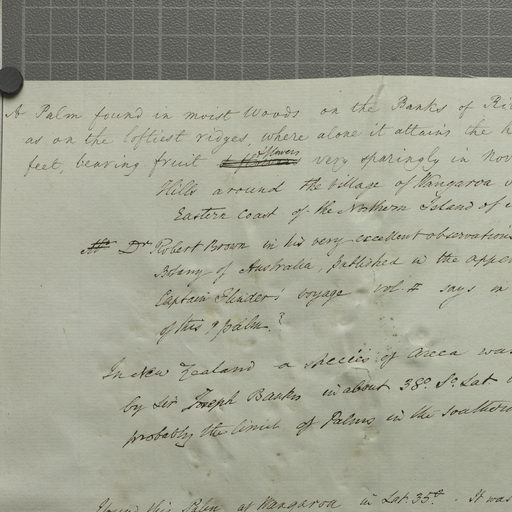 A Palm found in moist Woods on the Banks of
as on the loftiest ridges, where alone it attains the
feet, bearing fruit & flowers very sparingly in Nov
Hills around the Village of Wangaroa
Eastern Coast of the Northern Island of
Dr Robert Brown in his very excellent observations
Botany of Australia, published in the appen
Captain Flinder's voyage vol. II says in
of this ? palm.
In New Zealand a species of Areca was
by Sir Joseph Banks in about 38° So Lat
probably the limit of Palms in the southern
found this Palm at Wangaroa in Lat. 35° . It was